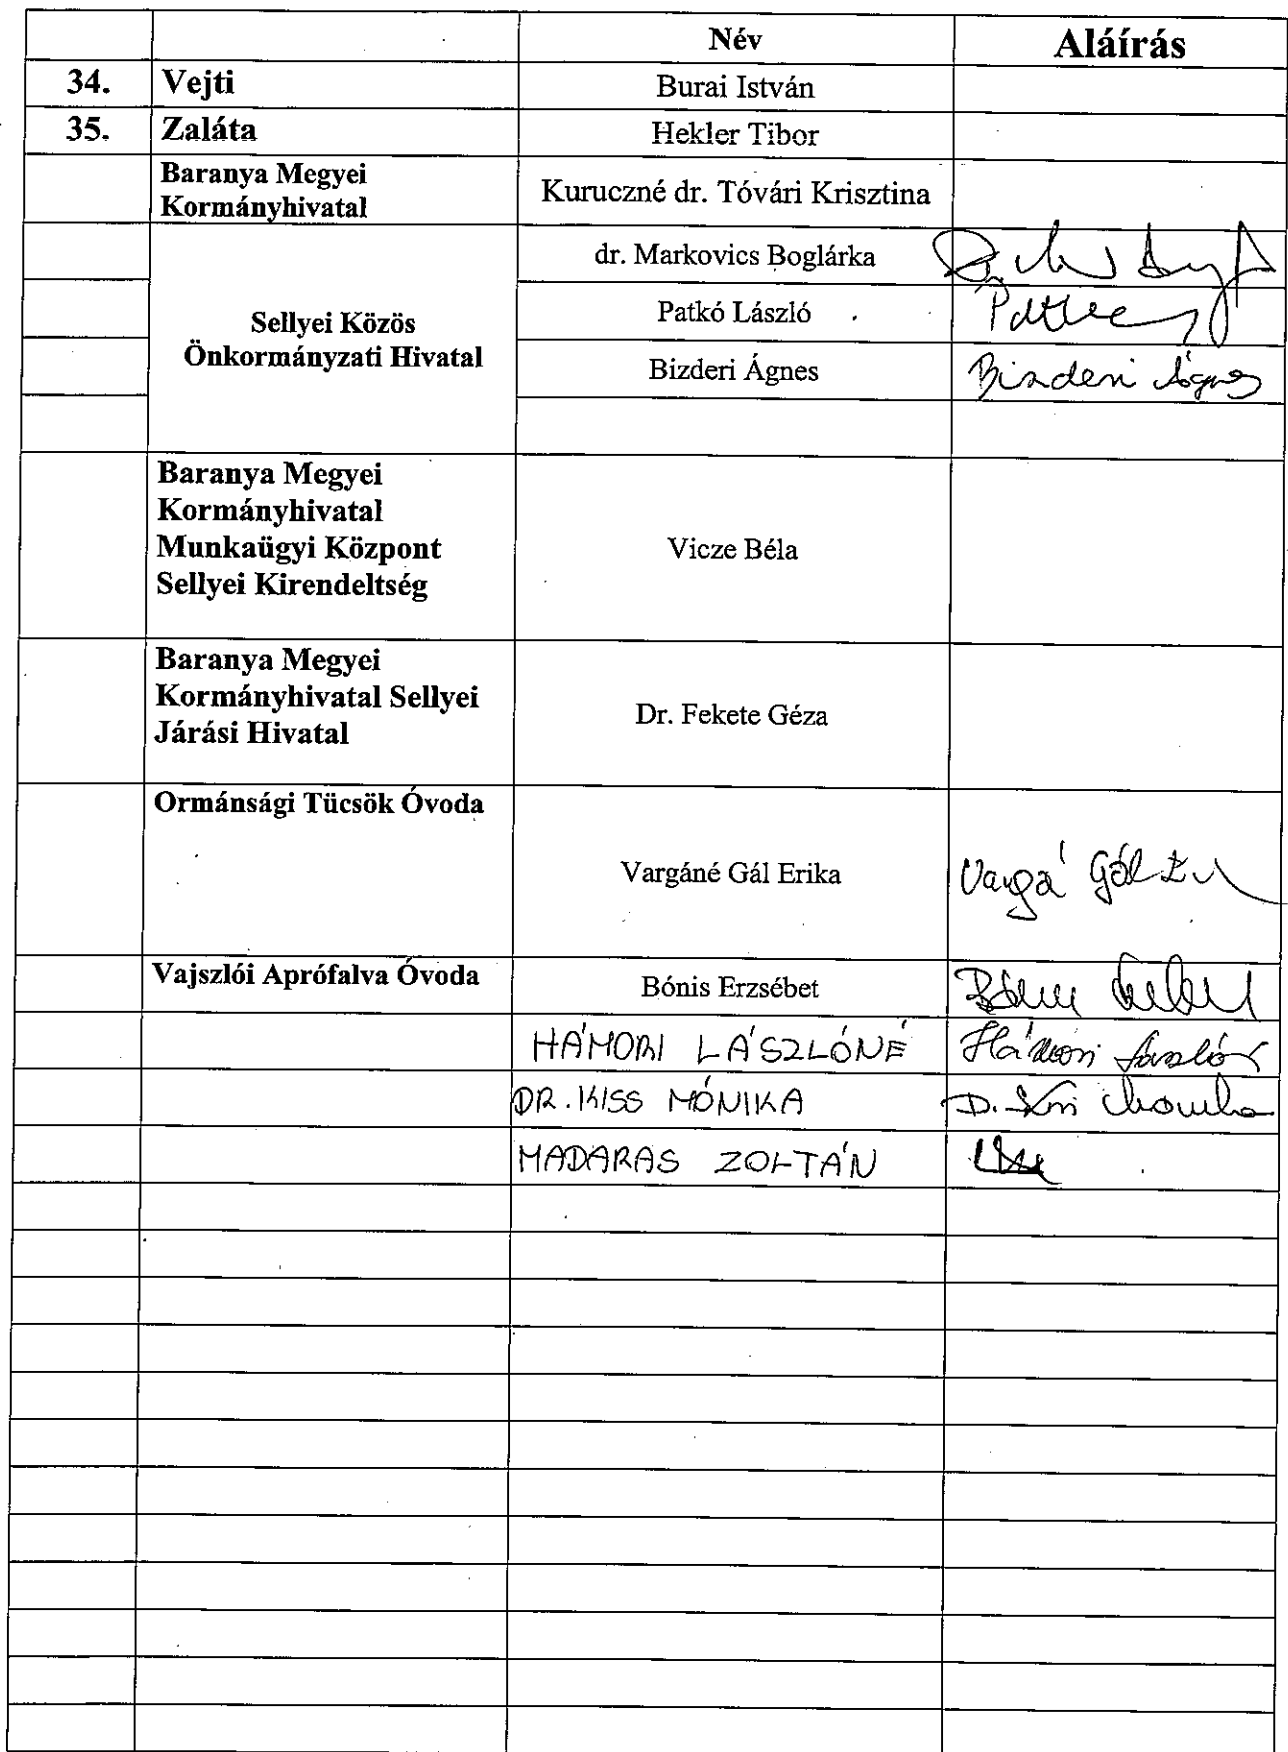 Név Aláírás
34. Vejti Burai István
35. Zaláta Hekler Tibor
Baranya Megyei
Kormányhivatal
Kuruczné dr. Tóvári Krisztina
Sellyei Közös
Önkormányzati Hivatal
dr. Markovics Boglárka
Patkó László
Bizderi Ágnes Bizderi Ágnes
Baranya Megyei
Kormányhivatal
Munkaügyi Központ
Sellyei Kirendeltség
Vicze Béla
Baranya Megyei
Kormányhivatal Sellyei
Járási Hivatal
Dr. Fekete Géza
Ormánsági Tücsök Óvoda
Vargáné Gál Erika Vargá Gál
Vajszlói Aprófalva Óvoda Bónis Erzsébet
HÁMORI LÁSZLÓNÉ Hámori
DR. KISS MÓNIKA
MADARAS ZOLTÁN